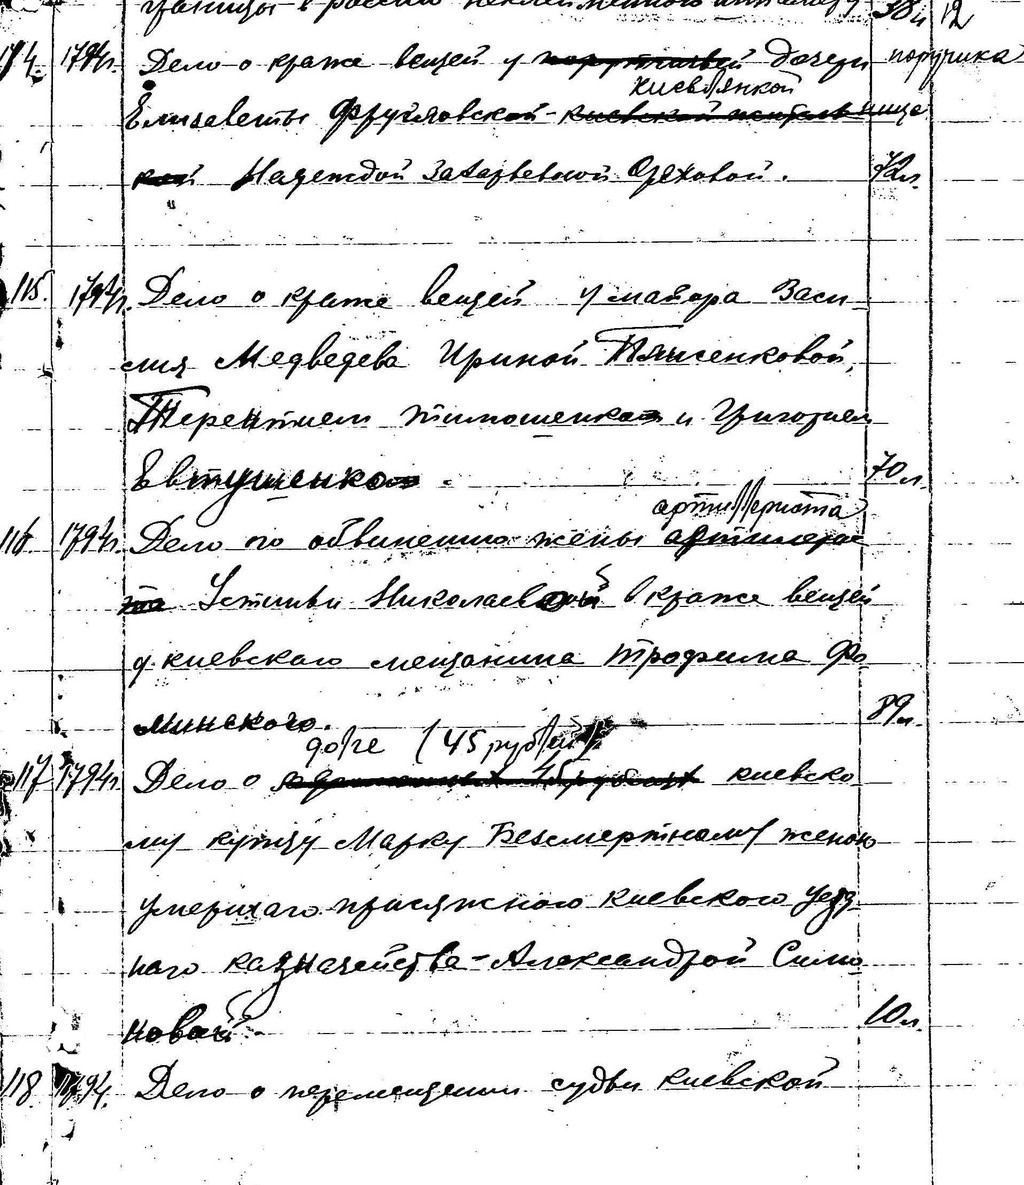 границы в Россию неклейменного 38л 12
114. 1794г. Дело о краже вещей у дочери поручика
киевлянкой
Елизаветы Фругловской - киевской
кой Надеждой Захарьевной Ореховой. 42л.
115. 1794г. Дело о краже вещей у майора Васи
лия Медведева Ириной Тписенковой,
Терентием Тимошенко и Григорием
Евтушенко. 70л.
артиллериста
116 1794г. Дело по обвинению жены артилерис
та Устиньи Николаевой в краже вещей
у киевского мещанина Трофима Фо
минского. 89л.
долге (45 рублей)
117 1794г. Дело о 45 рублях киевско
му купцу Марку Безсмертному женою
умершаго присяжного киевского уезд
наго казначейства - Александрой Симо
новой. 10л.
118. 1794. Дело о перемещении судьи киевской